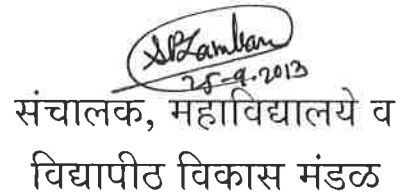 25-9-2013
संचालक, महाविद्यालये व
विद्यापीठ विकास मंडळ